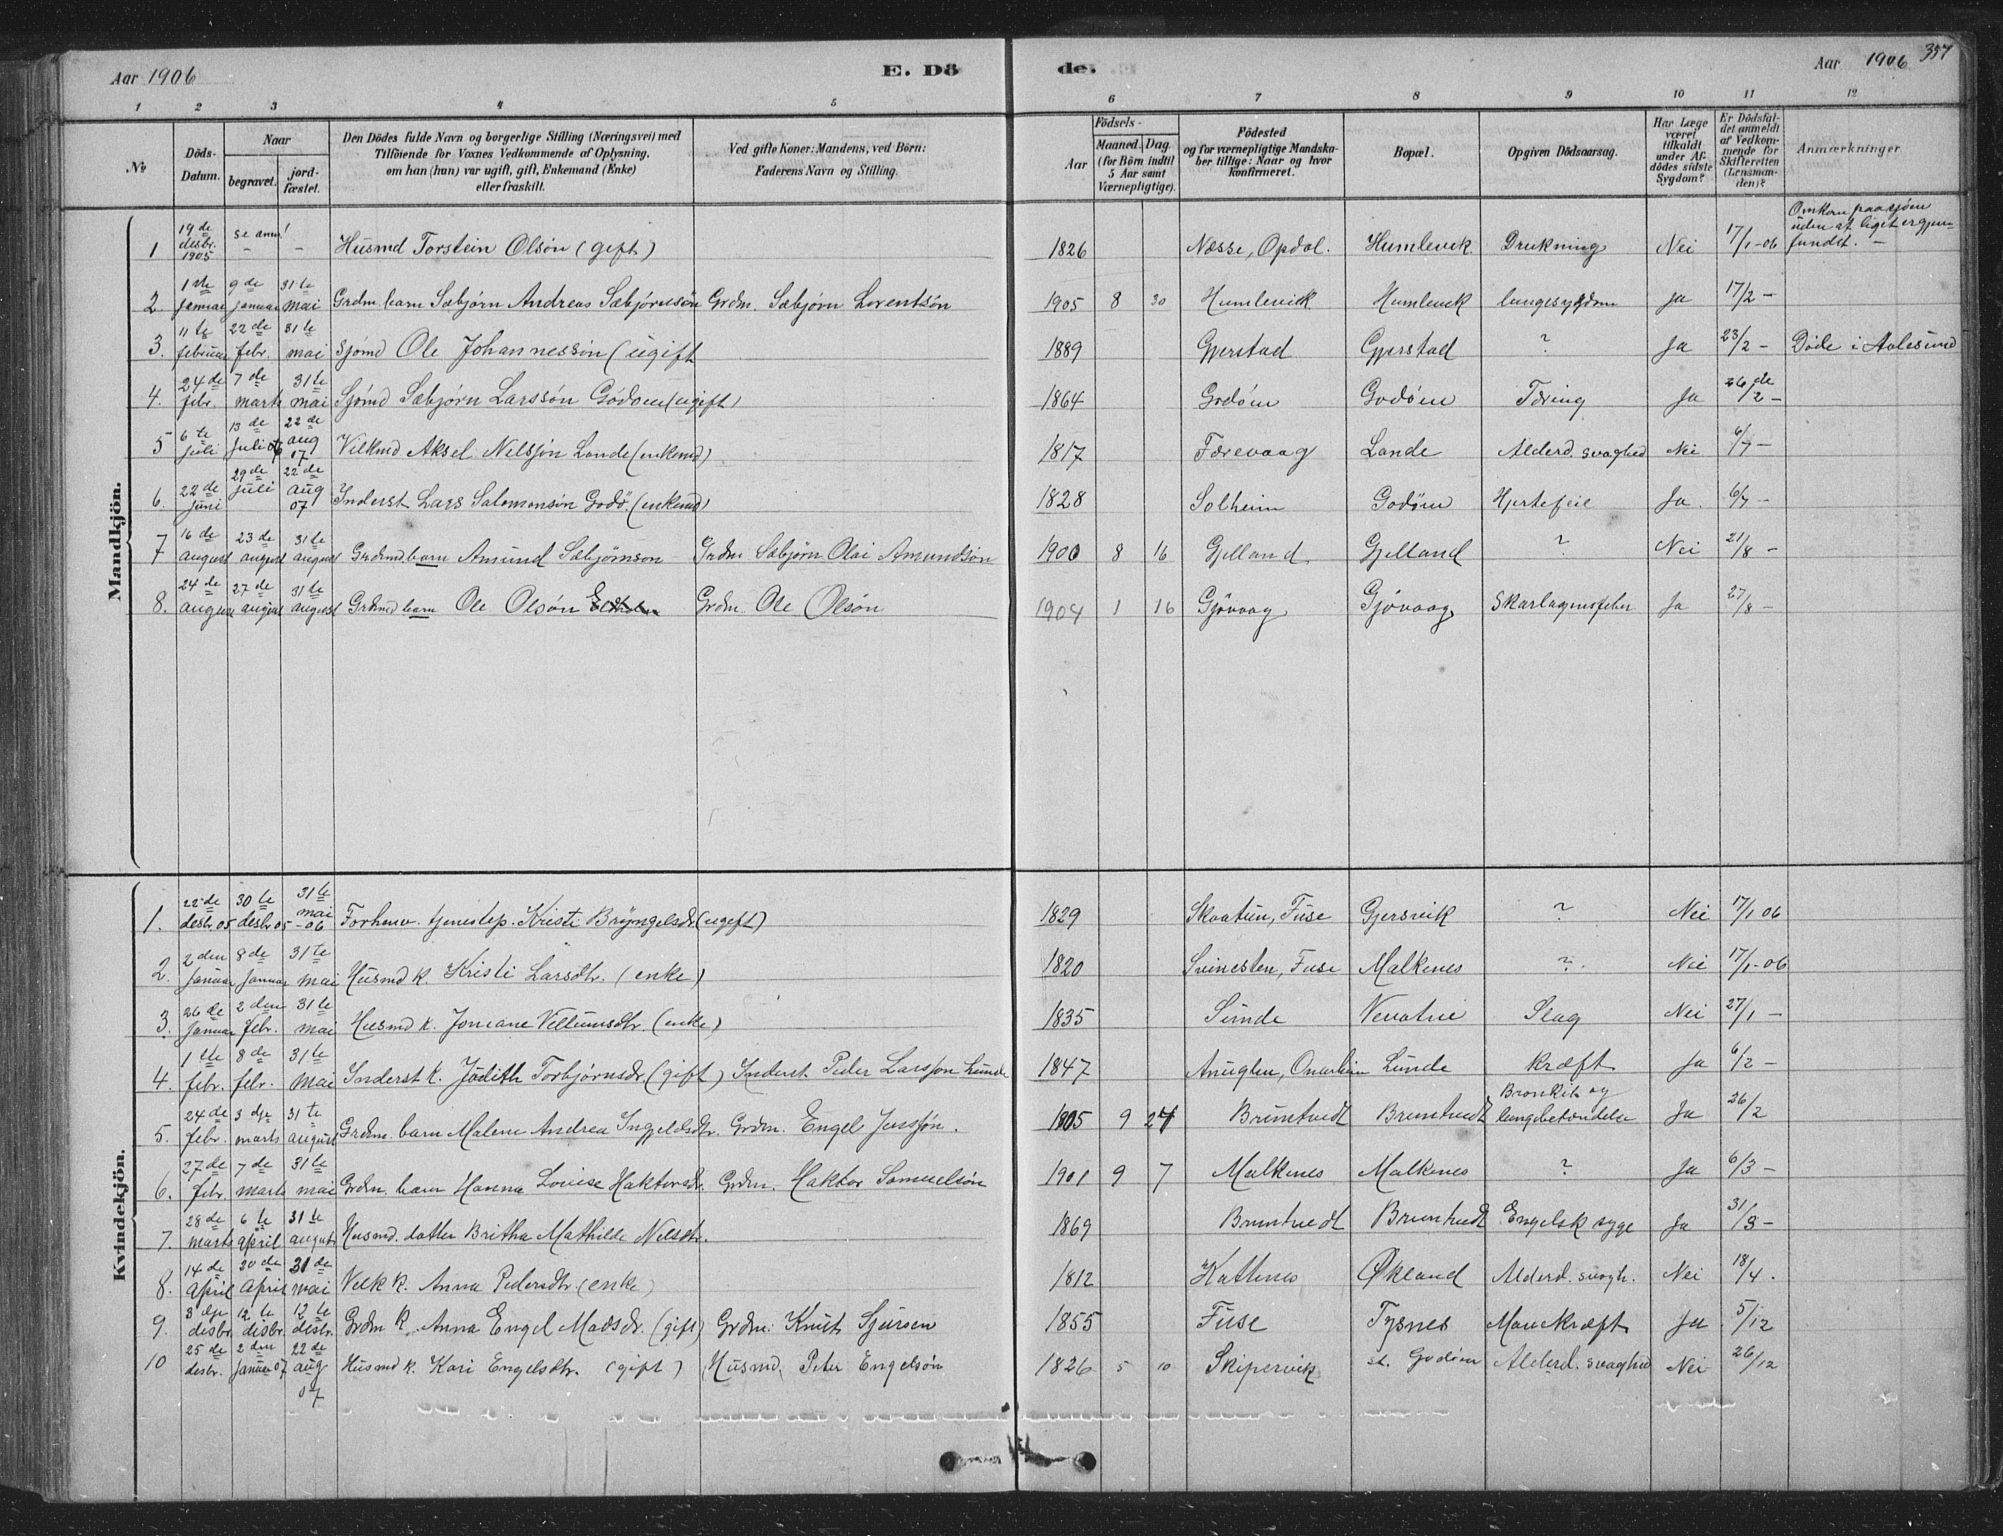 Aar 1906
E. Dö
de.
Aar 1906
357
1 2 3 4 5 6 7 8 9 10 11 12
No
Döds-Datum.
Naar
begravet. jord-fæstet.
Den Dödes fulde Navn og borgerlige Stilling (Næringsvei) med
Tilföiende for Voxnes Vedkommende af Oplysning,
om han (hun) var ugift, gift, Enkemand (Enke)
eller fraskilt.
Ved gifte Koner: Mandens, ved Börn:
Faderens Navn og Stilling.
Födsels-
Aar
Maaned. Dag.
(for Börn indtil 5 Aar samt Værnepligtige).
Födested
og for værnepligtige Mandska-
ber tillige: Naar og hvor
konfirmeret.
Bopæl.
Opgiven Dödsaarsag.
Har Læge været tilkaldt under Afdödes sidste Sygdom?
Er Dödsfaldet anmeldt af Vedkommende for Skifteretten (Lensmanden)?
Anmærkninger
Mandkjön.
1 19de desbr. 1905 se anm! - - Husmd Torstein Olsön (gift) 1826 Næsse, Opdal. Humlevik Drukning Nei 17/1-06 Omkom paa sjöen uden at liget er gjenfundet. -
2. 1ste januar 9de januar 31te mai Grdm. barn Sæbjörn Andreas Sæbjörnsön Grdm. Sæbjörn Lorentsön 1905 8 30 Humlevik Humlevik lungesygdom Ja 17/2 -
3. 11te februar 22de febr. 31te mai Sjömd Ole Johannessön (ugift 1889 Gjerstad Gjerstad ? Ja 23/2 - Döde i Aalesund
4. 24de febr. 7de marts 31te mai Sjömd Sæbjörn Larssön Godöen (ugift) 1864 Godöen Godöen Tæring Ja 26de/2 -
5 6te juli 13de Juli 06 22de aug 07 Vilkmd Aksel Nilssön Lande (enkemd) 1817 Færevaag Lande Alderd. svaghed Nei 6/7 -
6. 22de juni 29de juli 22de aug 07 Inderst Lars Salomonsön Godö. (enkemd) 1828 Solheim Godöen Hjertefeil Ja. 6/7 -
7 16de august 23de august 31te august Grdmd. barn Amund Sæbjörnson Grdm Sæbjörn Olai Amundsön 1900 8 16 Gjelland Gjelland ? Nei 21/8 -
8. 24de august 27de august 31te august Grdmd barn Ole Olsön Grdm. Ole Olsön 1904 1 16 Gjövaag Gjövaag Skarlagensfeber Ja 27/8 -
Kvindekjön.
1. 22de desbr 05 30te desbr 05 31te mai -06 Forhenv. tjenestep. Kristi Bryngelsdr. (ugift) 1829 Skaatun, Fuse Gjersvik ? Nei 17/1 06
2. 2den januar 8de januar 31te mai Husmd k. Kristi Larsdtr. (enke) 1820 Svinesten, Fuse Malkenes ? Nei 17/1-06
3. 26de januar 2den febr. 31te mai Husmd k. Joniane Villumsdtr. (enke) 1835 Sunde Slag Nei 27/1 -
4. 1ste febr. 8de febr. 31te mai Inderst k. Jödith Torbjörnsdr. (gift) Inderst Peder Larssön Lunde 1847 Anuglen, Onarheim Lunde kræft Ja 6/2 -
5. 24de febr. 3dje marts 31te august Grdm. barn Malene Andrea Ingjeldsdtr. Grdm. Engel Jenssön. 1905 9 27 Bruntvedt Bruntvedt Bronkit og lungebetændelse Ja 26/2
6. 27de febr. 7de marts 31te mai Grdm. barn Hanna Lovise Haktorsdr. Grdm. Haktor Samuelsön 1901 9 7 Malkenes Malkenes ? Ja 6/3 -
7. 28de marts 6te april 31te august Husmd. datter Britha Mathilde Nilsdtr. 1869 Bruntvedt Bruntvedt Engelsk syge Ja 31/3 -
8. 14de April 20de April 31de mai Vilk k. Anna Pedersdtr. (enke) 1812 Kattenes Økland Alderd. svagh. Nei 18/4.
9. 3dje desbr. 12te desbr. 12te desbr. Grdm k. Anna Engel Madsdr. (gift) Grdm. Knut Sjursen 1855 Fuse Tysnes Mavekræft Ja 5/12
10 25de desbr. 2den januar 07 22de aug 07 Husmd k. Kari Engelsdtr. (gift) Husmd. Peter Engelsön 1826 5 10 Skipervik st. Godöen Alderd. svaghed Nei 26/12